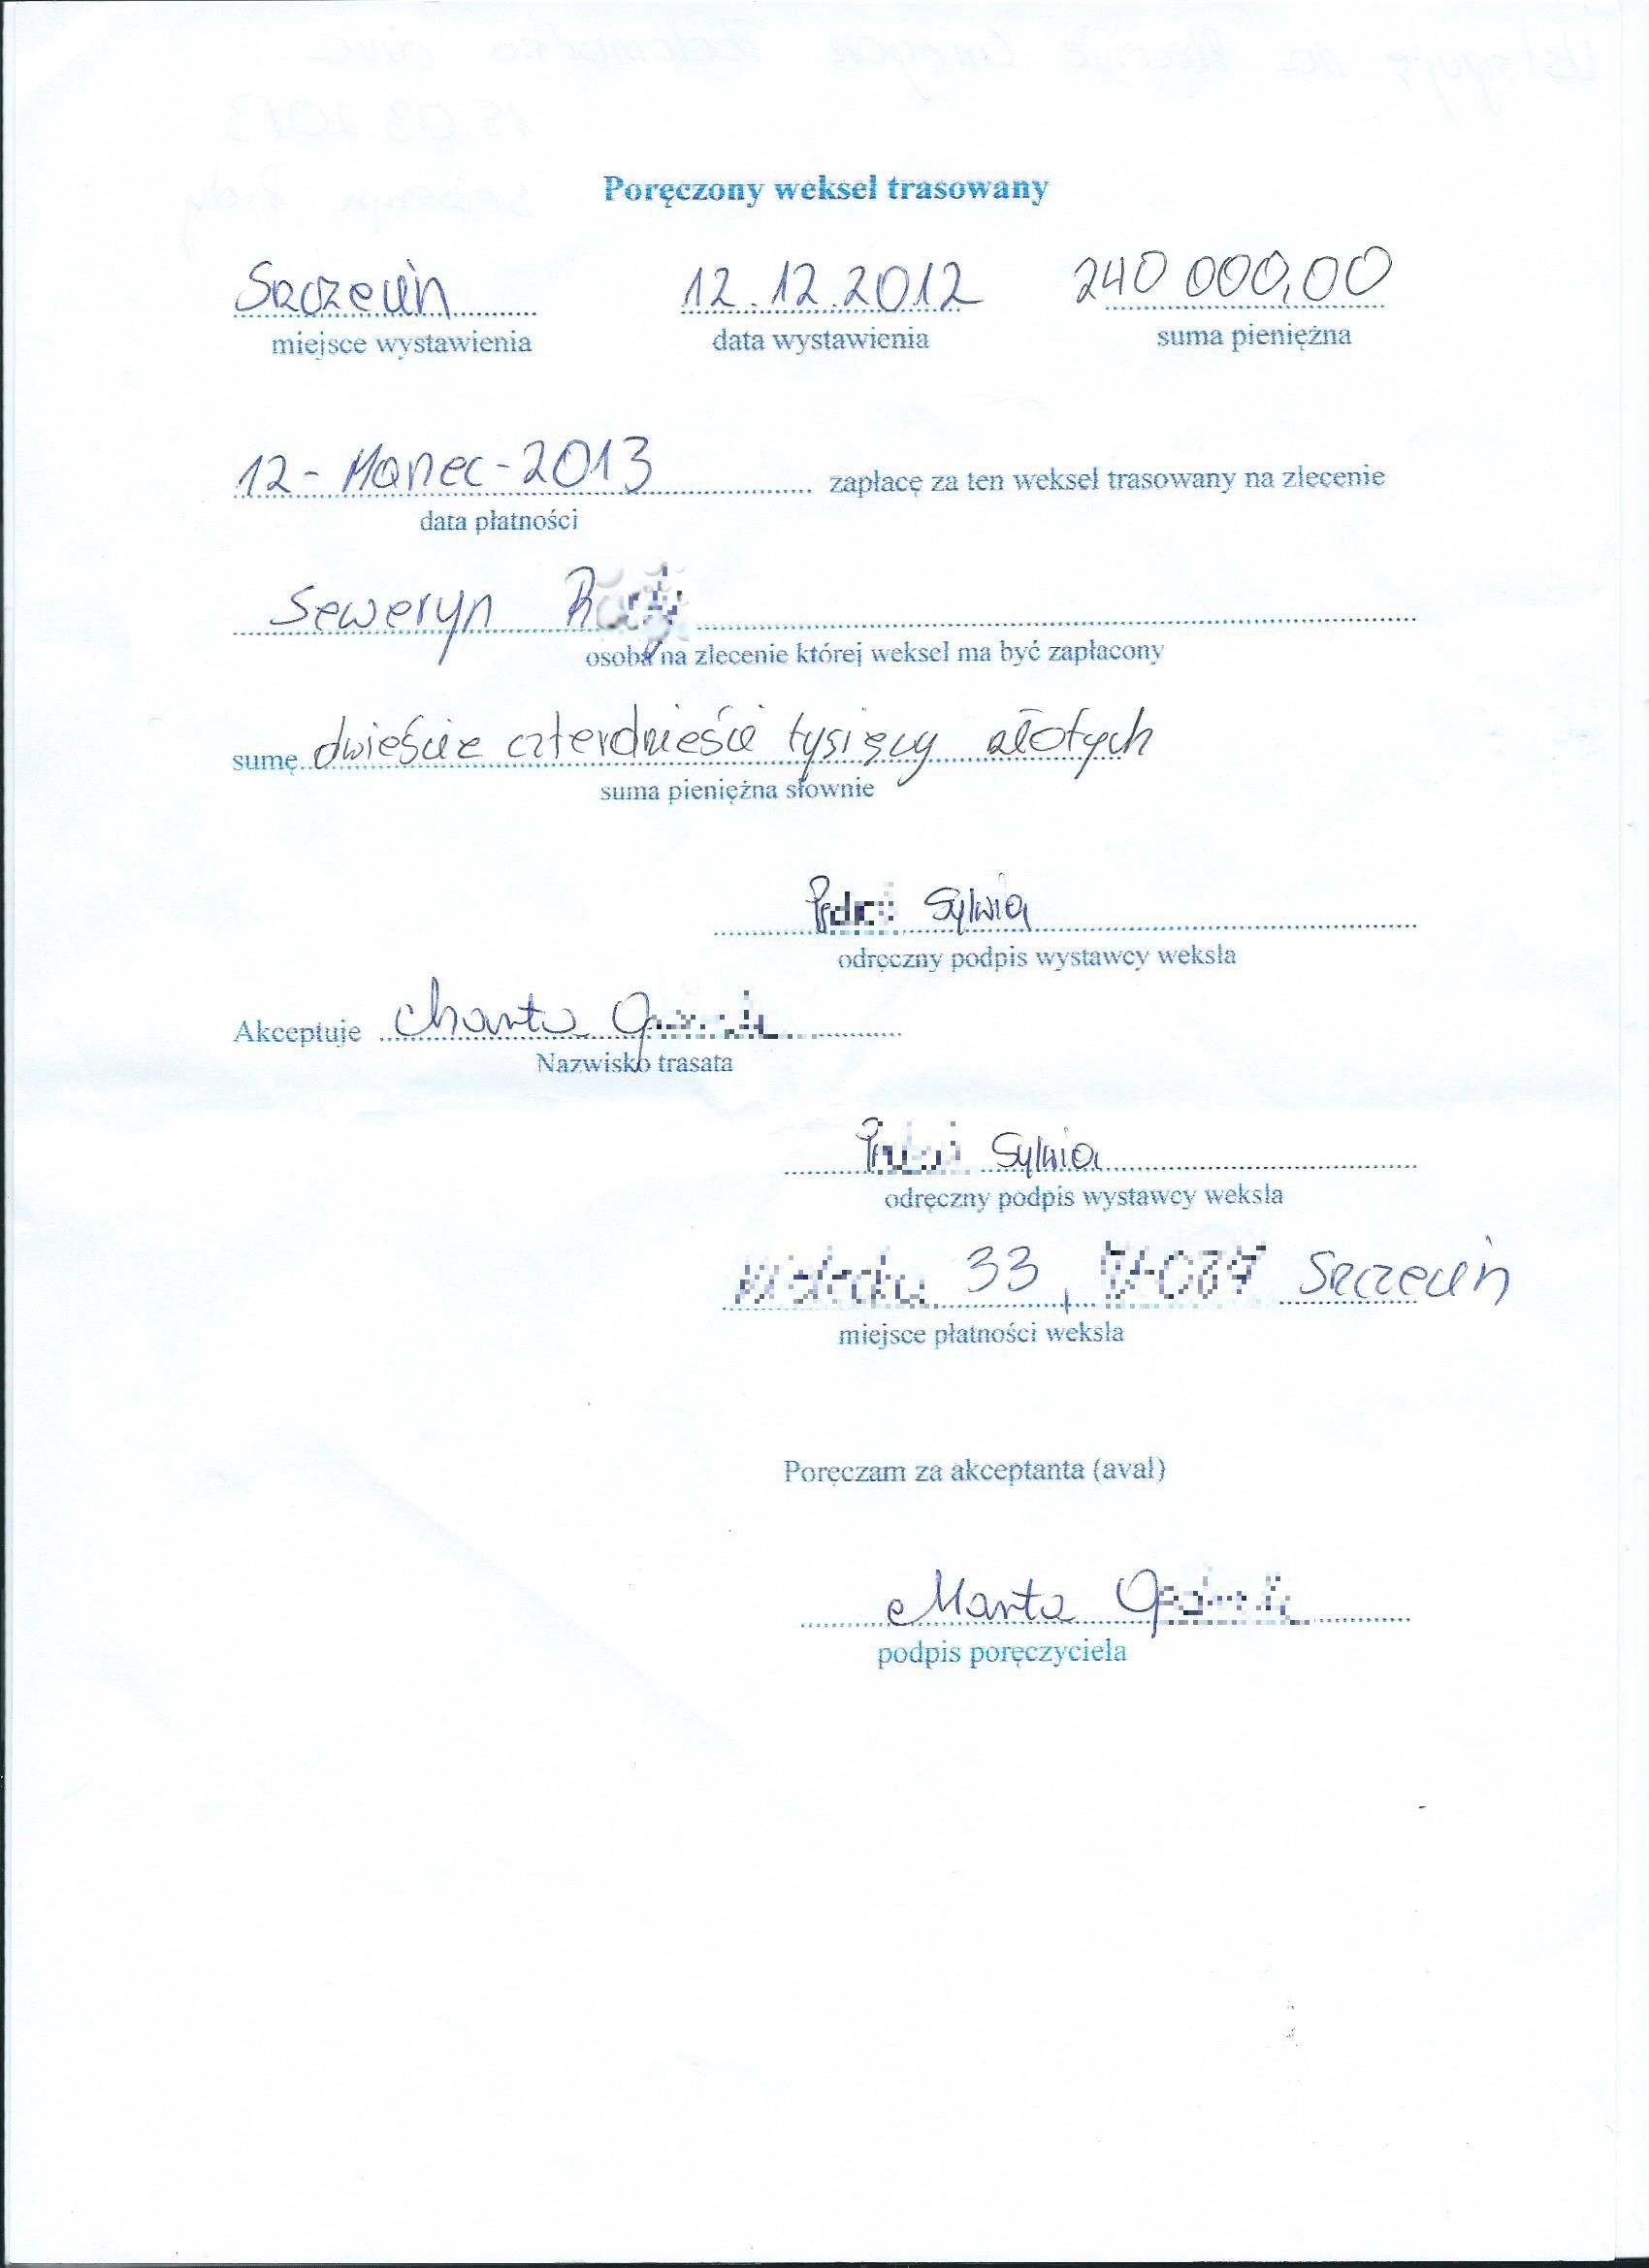 Poręczony weksel trasowany
Szczecin 12.12.2012 240 000,00
miejsce wystawienia data wystawienia suma pieniężna
12-Marzec-2013 zapłacę za ten weksel trasowany na zlecenie
data płatności
Seweryn
osoba na zlecenie której weksel ma być zapłacony
sumę dwieście czterdzieści tysięcy złotych
suma pieniężna słownie
Sylwia
odręczny podpis wystawcy weksla
Akceptuje Marta
Nazwisko trasata
Sylwia
odręczny podpis wystawcy weksla
33, Szczecin
miejsce płatności weksla
Poręczam za akceptanta (aval)
Marta
podpis poręczyciela